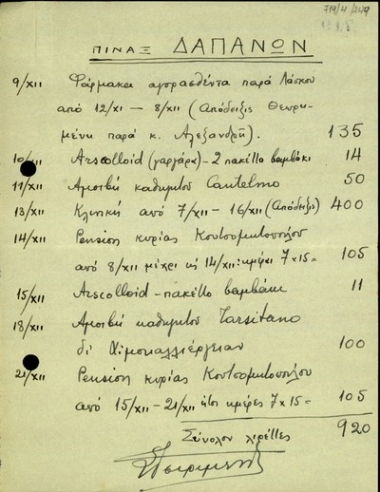 ΠΙΝΑΞ ΔΑΠΑΝΩΝ
9/XII Φάρμακα αγορασθέντα παρά Λάσκου
από 12/XI – 8/XII (Απόδειξις θεωρη-
μένη παρά κ. Αλεξανδρή). 135
10/XII Arscolloid (γαργάρα) – 2 πακέττο βαμβάκι 14
11/XII Αμοιβή καθηγητού Cantelmo 50
13/XII Κλινική από 7/XII – 16/XII (Απόδειξις) 400
14/XII Pension κυρίας Κουτσομητοπούλου
από 8/XII μέχρι 14/XII: ημέραι 7×15= 105
15/XII Arscolloid – πακέττο βαμβάκι 11
18/XII Αμοιβή καθηγητού Tarsitano
δι' 100
21/XII Pension κυρίας Κουτσομητοπούλου
από 15/XII – 21/XII ήτοι ημέρες 7×15= 105
Σύνολον λιρέττες 920